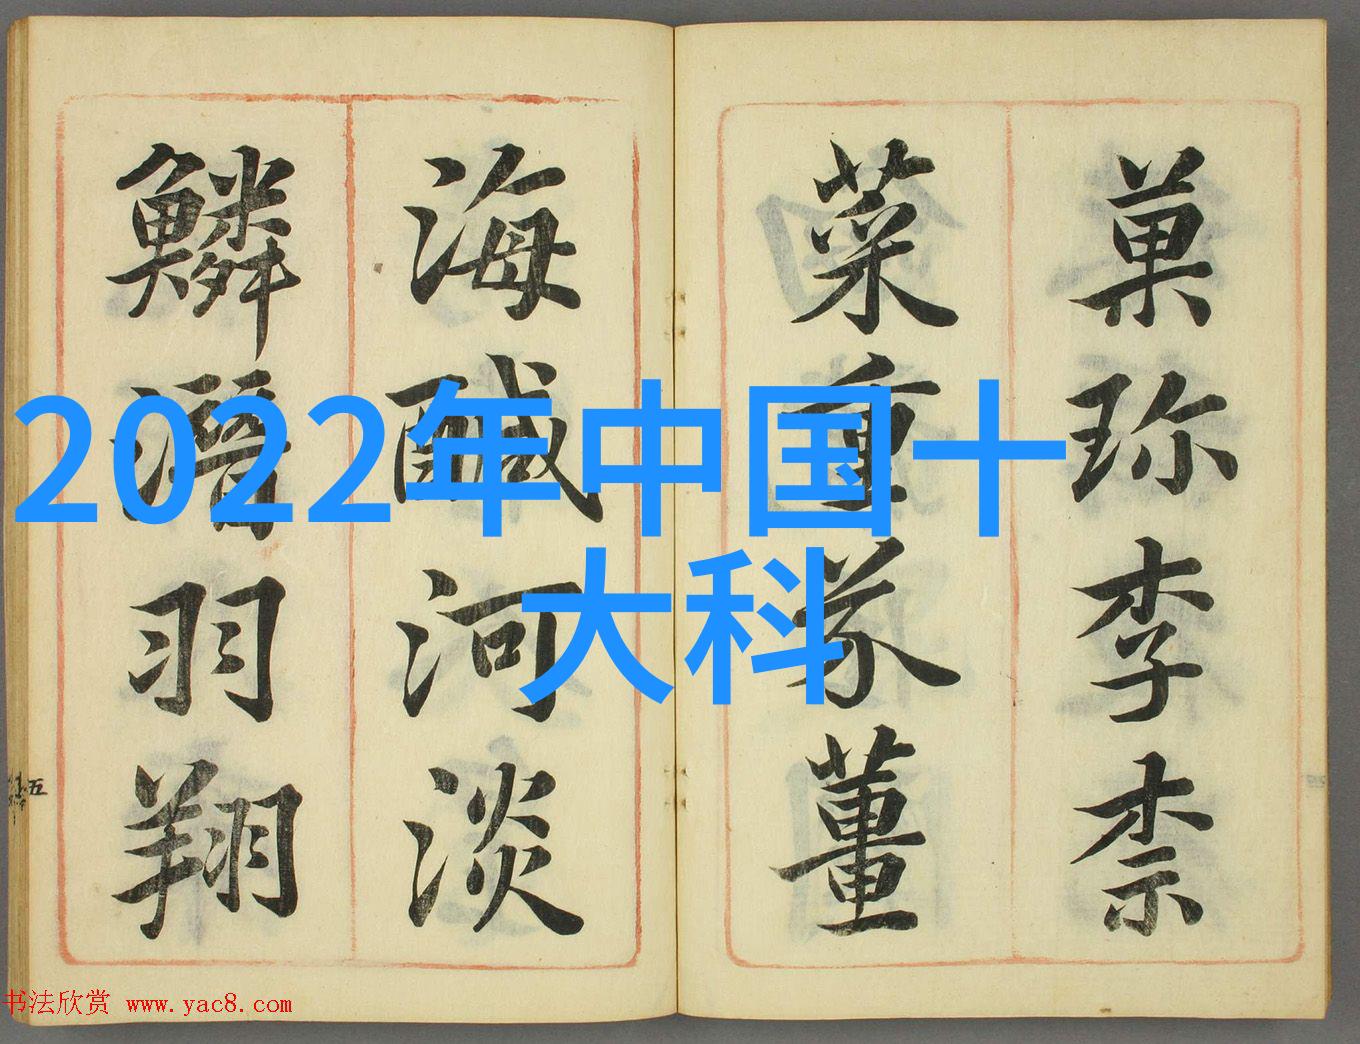 2022年中国十
大科
菓珎李柰
菜重芥薑
海鹹河淡
鱗潛羽翔
五
书法欣赏 www.yac8.com